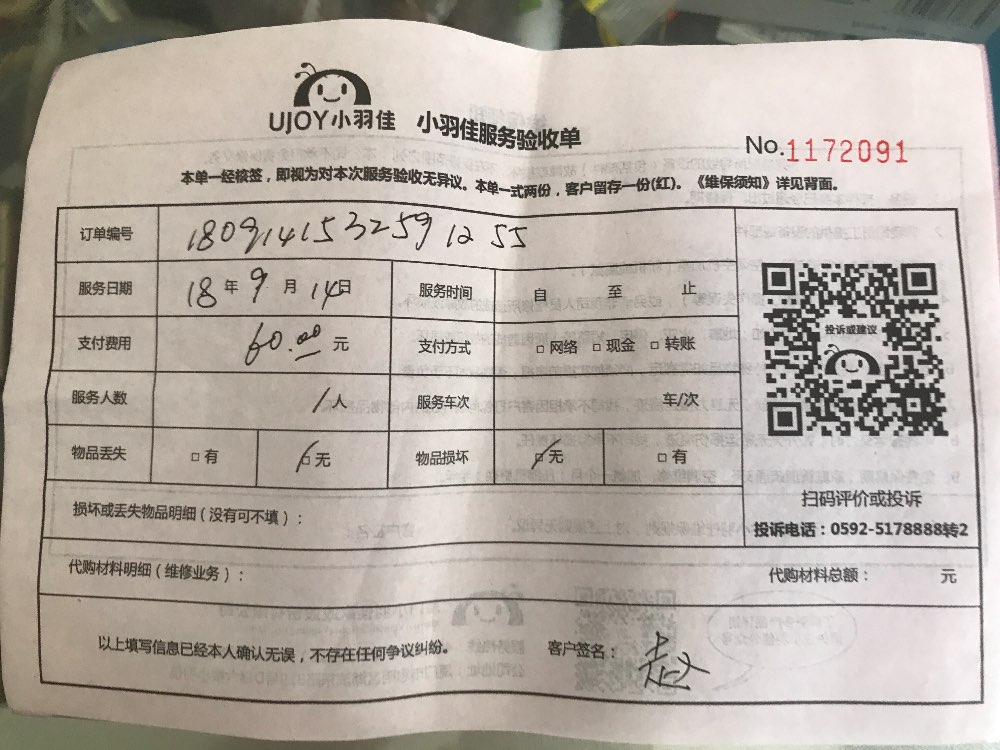 UJOY小羽佳 小羽佳服务验收单
No.1172091
本单一经核签，即视为对本次服务验收无异议。本单一式两份，客户留存一份(红)。《维保须知》详见背面。
订单编号 180914153259 12 55
服务日期 18年9月14日 服务时间 自 至 止
支付费用 60.00元 支付方式 □网络 □现金 □转账
服务人数 1人 服务车次 车/次
物品丢失 □有 □无 物品损坏 □无 □有
投诉或建议
扫码评价或投诉
投诉电话：0592-5178888转2
损坏或丢失物品明细（没有可不填）：
代购材料明细（维修业务）： 代购材料总额： 元
以上填写信息已经本人确认无误，不存在任何争议纠纷。 客户签名：赵